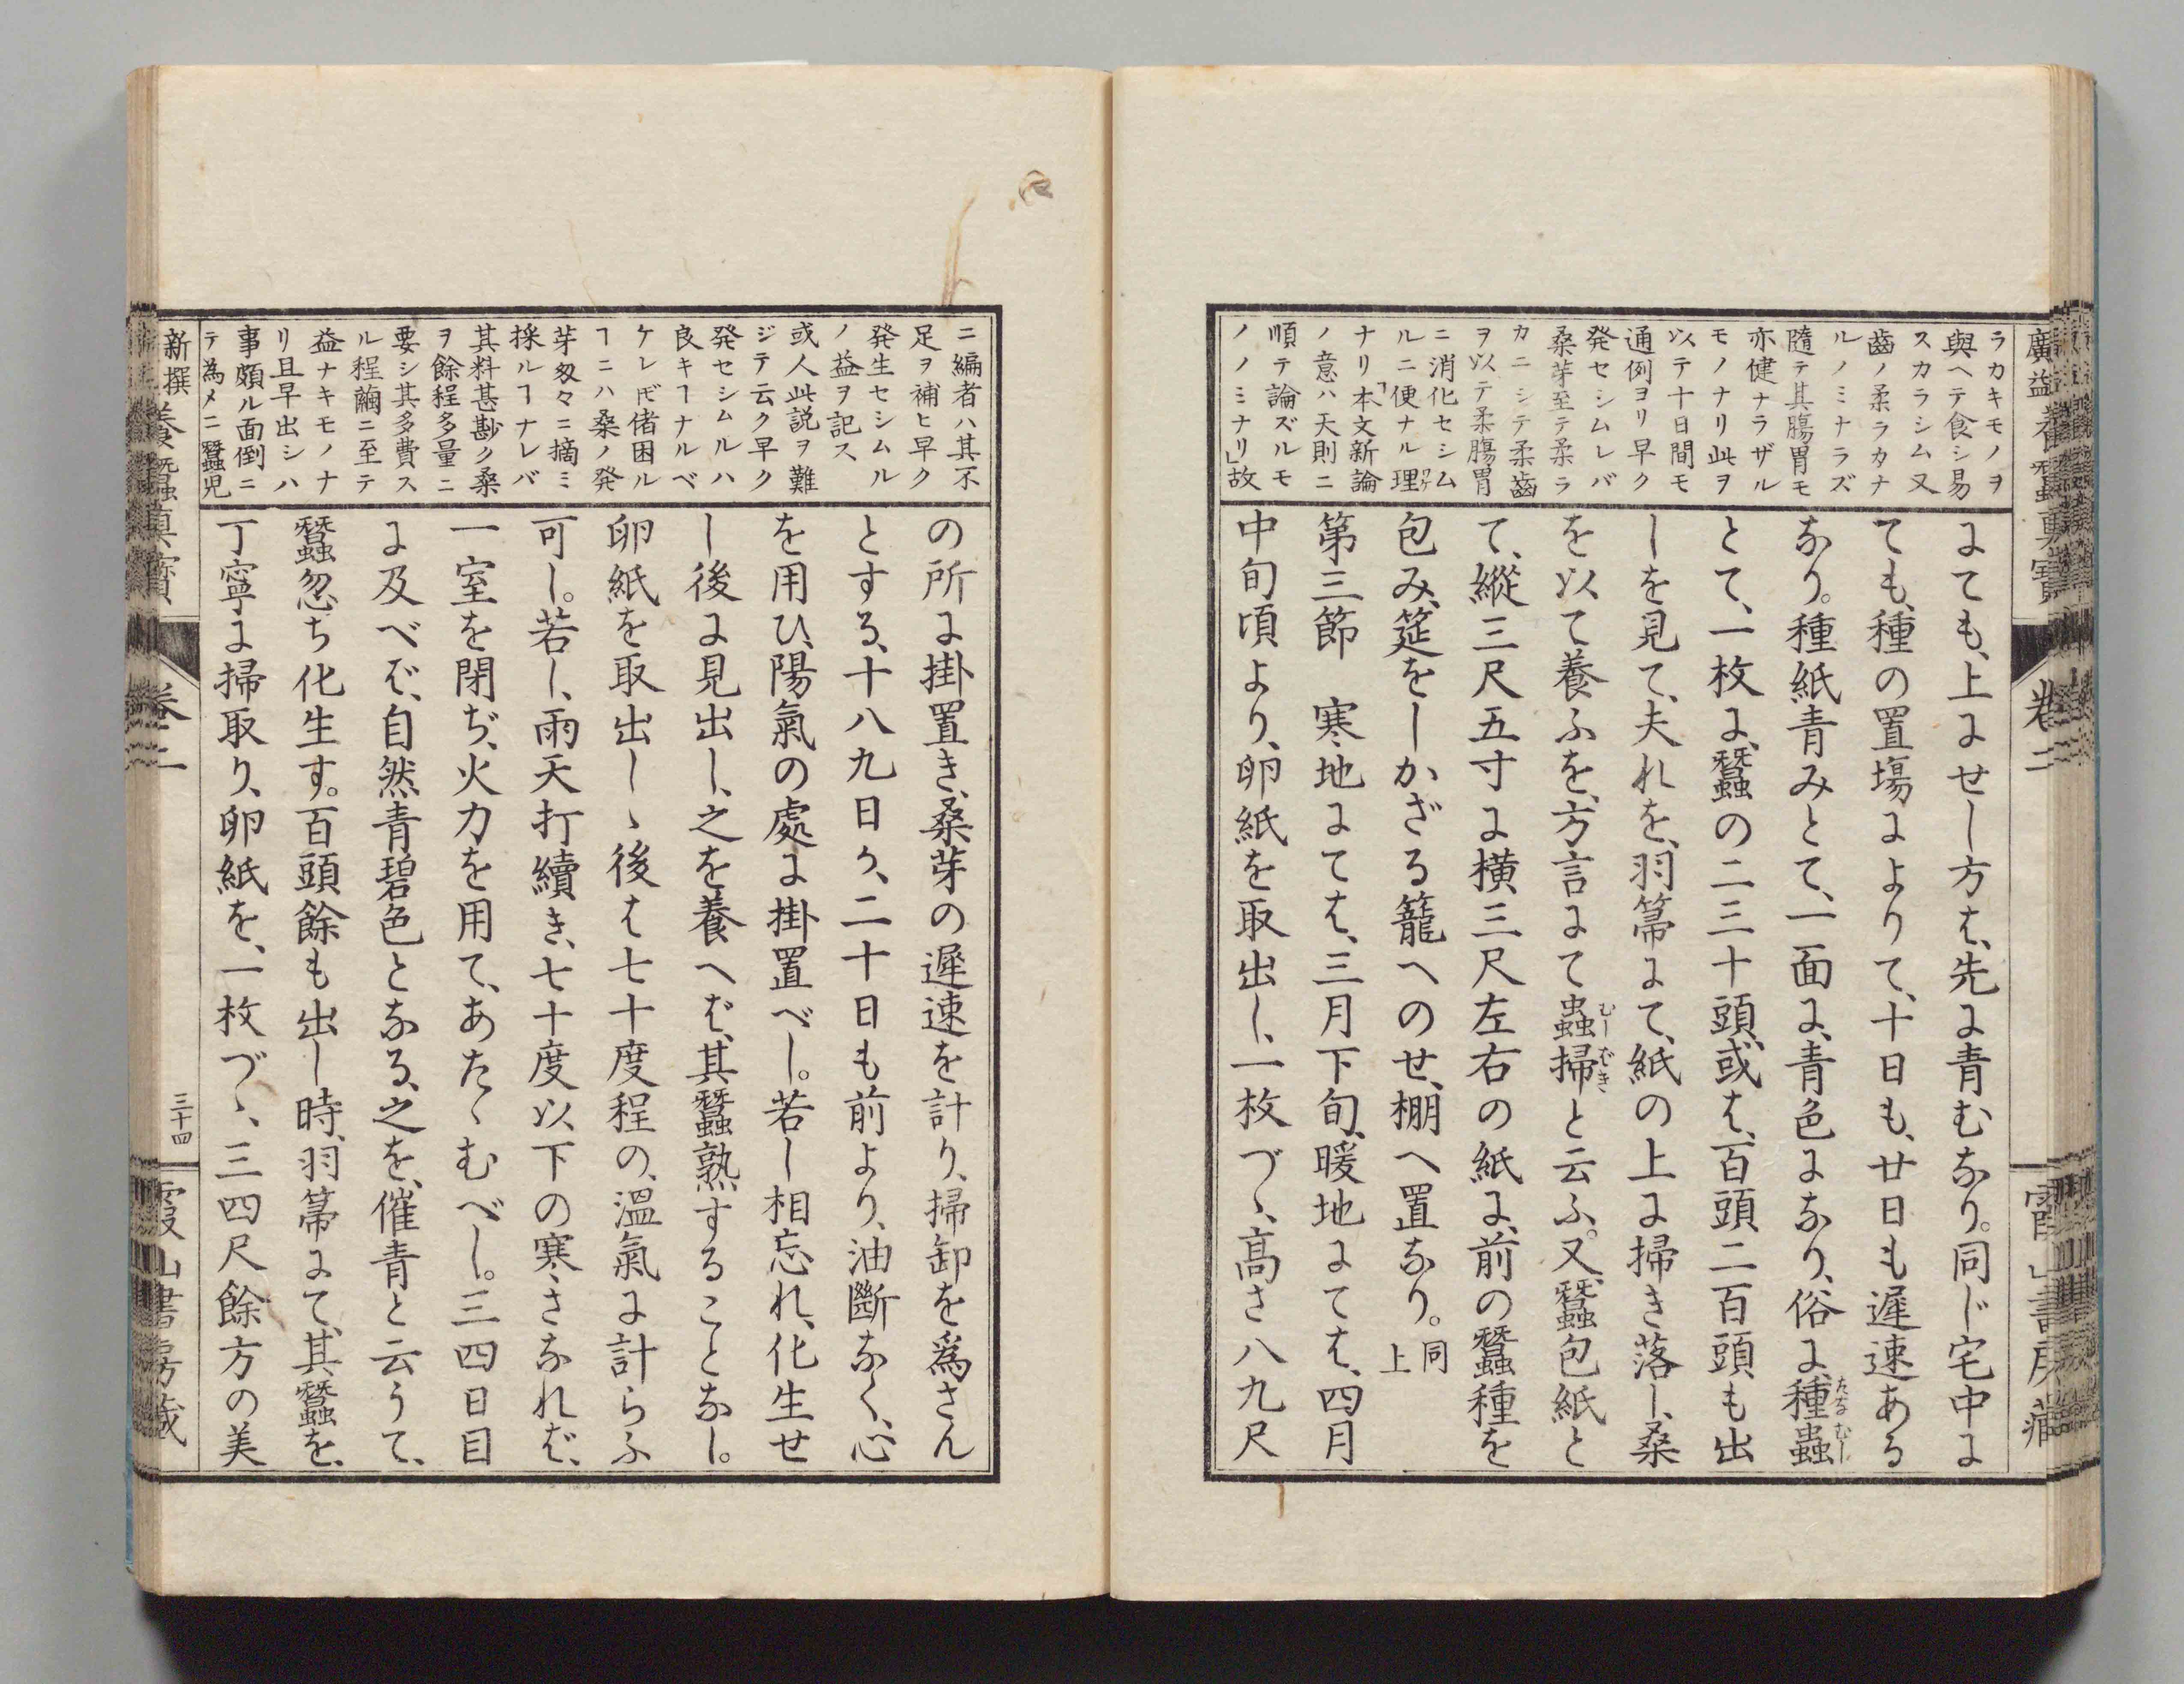 廣益養蠶眞寶
卷二
霞山書房藏
ラカキモノヲ
與ヘテ食シ易
スカラシム又
齒ノ柔ラカナ
ルノミナラズ
隨テ其膓胃モ
亦健ナラザル
モノナリ此ヲ
以テ十日間モ
通例ヨリ早ク
発セシムレバ
桑芽至テ柔ラ
カニシテ柔齒
ヲ以テ柔膓胃
ニ消化セシム
ルニ便ナル理
ナリ「本文新論
ノ意ハ天則ニ
順テ論ズルモ
ノノミナリ」故
にても、上にせし方は、先に青むなり。同じ宅中に
ても、種の置塲によりて、十日も、廿日も遲速ある
なり。種紙青みとて、一面に、青色になり、俗に、種蟲
とて、一枚に、蠶の二三十頭、或は、百頭二百頭も出
しを見て、夫れを、羽箒にて、紙の上に掃き落し、桑
を以て養ふを、方言にて蟲掃と云ふ。又、蠶包紙と
て、縱三尺五寸に横三尺左右の紙に、前の蠶種を
包み、筵をしかざる籠へのせ、棚へ置なり。同上
第三節　寒地にては、三月下旬、暖地にては、四月
中旬頃より、卵紙を取出し、一枚づゝ、高さ八九尺
ニ編者ハ其不
足ヲ補ヒ早ク
発生セシムル
ノ益ヲ記ス
或人此説ヲ難
ジテ云ク早ク
発セシムルハ
良キヿナルベ
ケレ𪜈偖困ル
ヿニハ桑ノ発
芽匁々ニ摘ミ
採ルヿナレバ
其料甚尠ク桑
ヲ餘程多量ニ
要シ其多費ス
ル程繭ニ至テ
益ナキモノナ
リ且早出シハ
事頗ル面倒ニ
テ為メニ蠶児
の所に掛置き、桑芽の遲速を計り、掃卸を爲さん
とする、十八九日か、二十日も前より、油斷なく、心
を用ひ、陽氣の處に掛置べし。若し相忘れ、化生せ
し後に見出し、之を養へば、其蠶熟することなし。
卵紙を取出しゝ後は七十度程の、温氣に計らふ
可し。若し、雨天打續き、七十度以下の寒さなれば、
一室を閉ぢ、火力を用て、あたゝむべし。三四日目
に及べば、自然青碧色となる、之を、催青と云うて、
蠶忽ち化生す。百頭餘も出し時、羽箒にて、其蠶を、
丁寧に掃取り、卵紙を、一枚づゝ、三四尺餘方の美
新撰養蠶眞寶
卷二
三十四
霞山書房藏